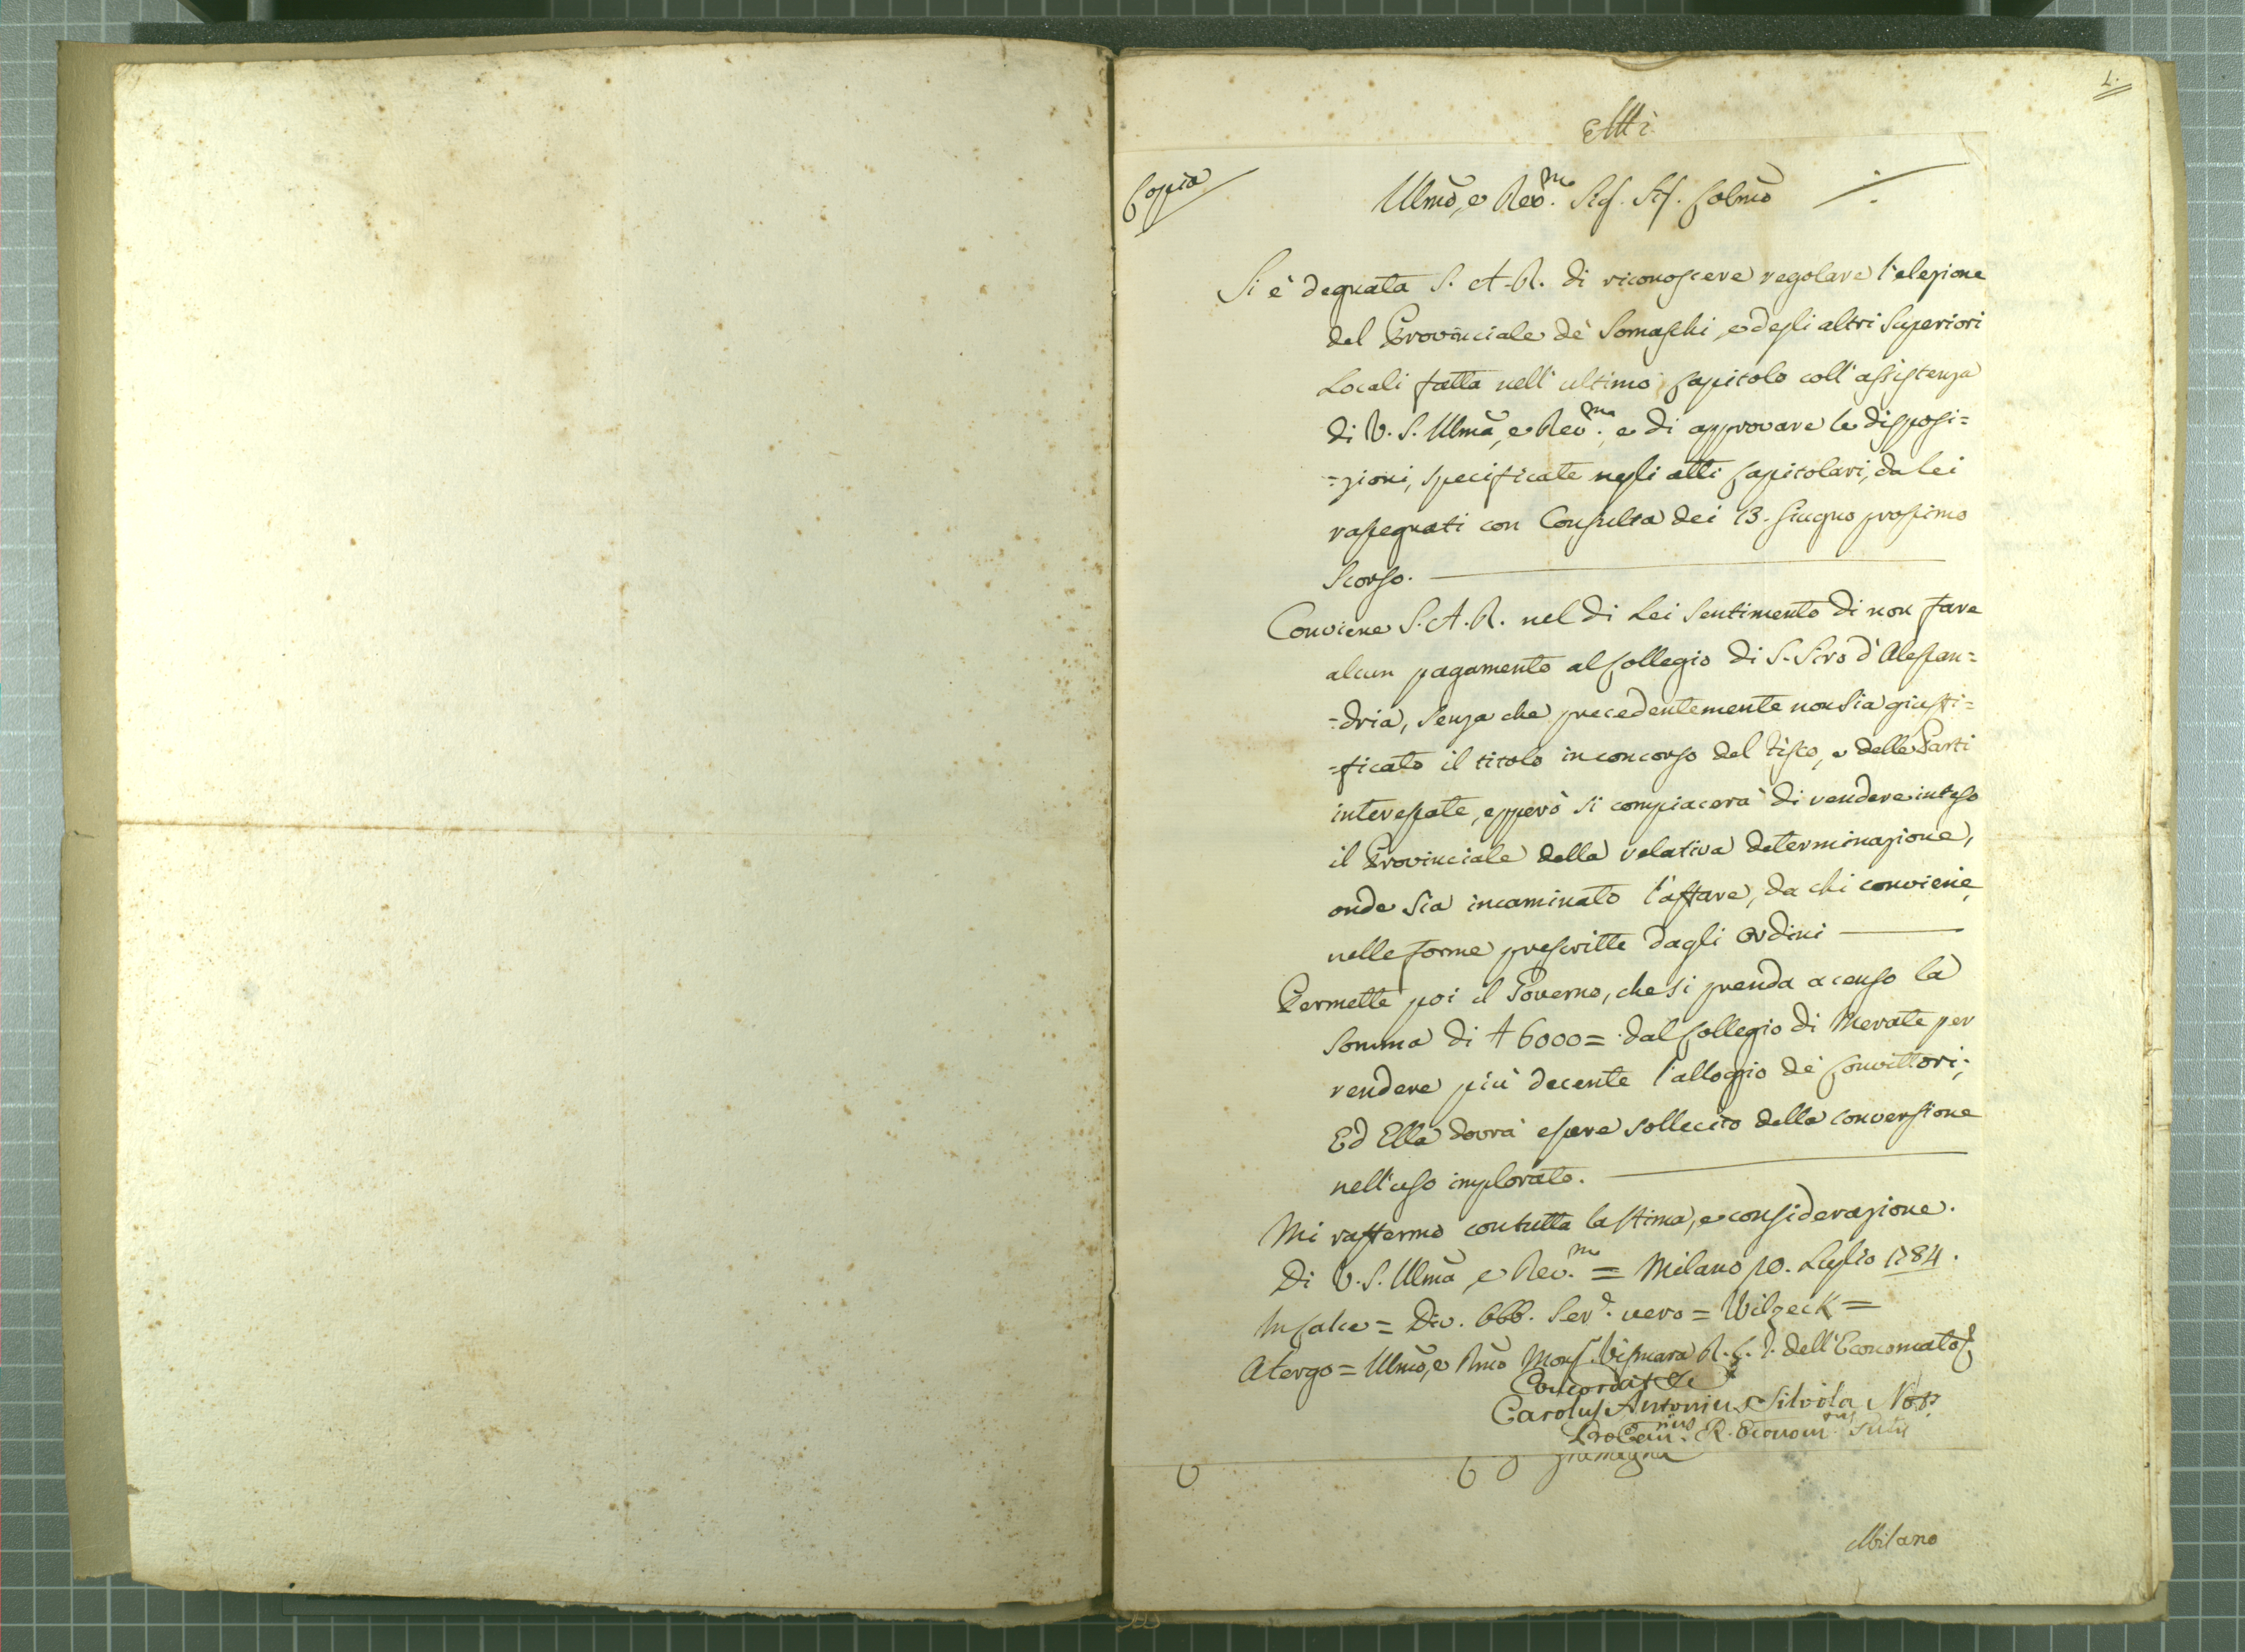 1.
Atti
Copia
Illmo, e Rev.mo Sig. Sig. Colmo
Si è degnata S. A. R. di riconoscere regolare l'elezione
del Provinciale de' Somaschi, e degli altri Superiori
Locali fatta nell'ultimo Capitolo coll'assistenza
di V. S. Illma, e Rev.ma, e di approvare le disposi=
=zioni, specificate negli atti Capitolari, da Lei
rassegnati con Consulta dei 13. Giugno prossimo
scorso.
Conviene S. A. R. nel di Lei sentimento di non fare
alcun pagamento al Collegio di S. Siro d'Alessan=
=dria, senza che precedentemente non sia giusti=
=ficato il titolo in concorso del Fisco, e delle Parti
interessate, epperò si compiacerà di rendere inteso
il Provinciale della relativa determinazione,
onde sia incaminato l'affare, da chi conviene,
nelle forme prescritte dagli Ordini
Permette poi il Governo, che si prenda a censo la
somma di £ 6000= dal Collegio di Merate per
rendere più decente l'alloggio de' Convittori;
Ed Ella dovrà essere sollecito della conversione
nell'uso implorato.
Mi raffermo con tutta la stima, e considerazione.
Di V. S. Illma, e Rev.ma = Milano 10. Luglio 1784.
In calce = Div. Obb. Serv.e vero = Wilzeck =
A tergo = Illmo, e Rmo Mons. Vismara R. G. dell'Economato
Concordat &c
Carolus Antonius Silvola Not.s
ProCan.rius R. Econom.tus
Milano